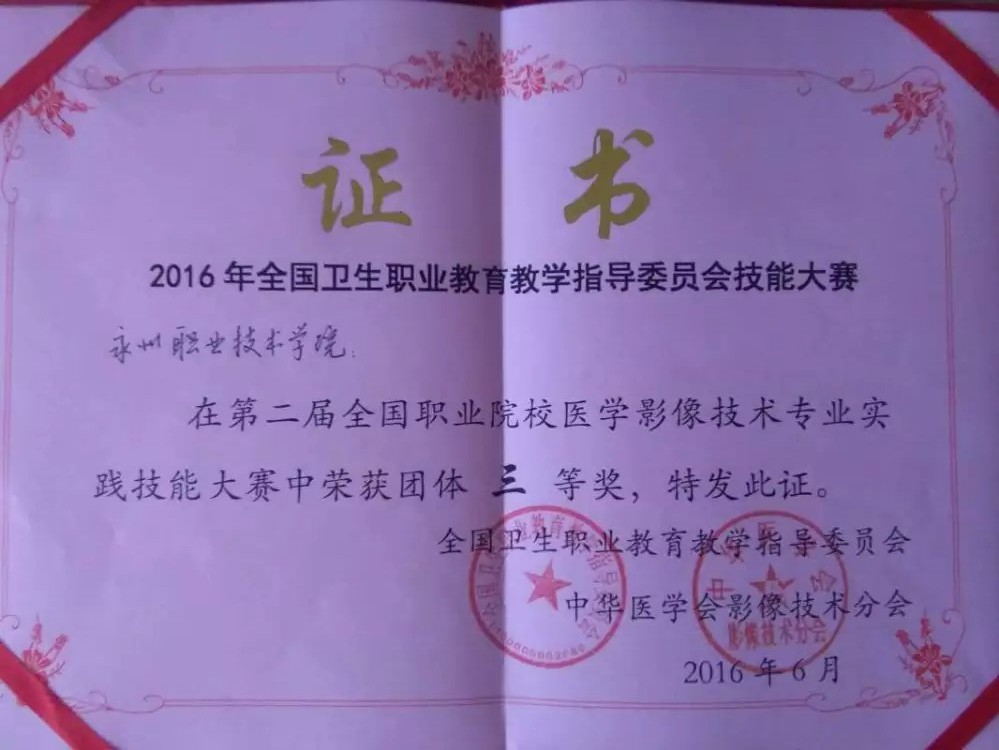 证 书
2016年全国卫生职业教育教学指导委员会技能大赛
永州职业技术学院:
在第二届全国职业院校医学影像技术专业实
践技能大赛中荣获团体 三 等奖，特发此证。
全国卫生职业教育教学指导委员会
中华医学会影像技术分会
2016年6月
影像技术分会